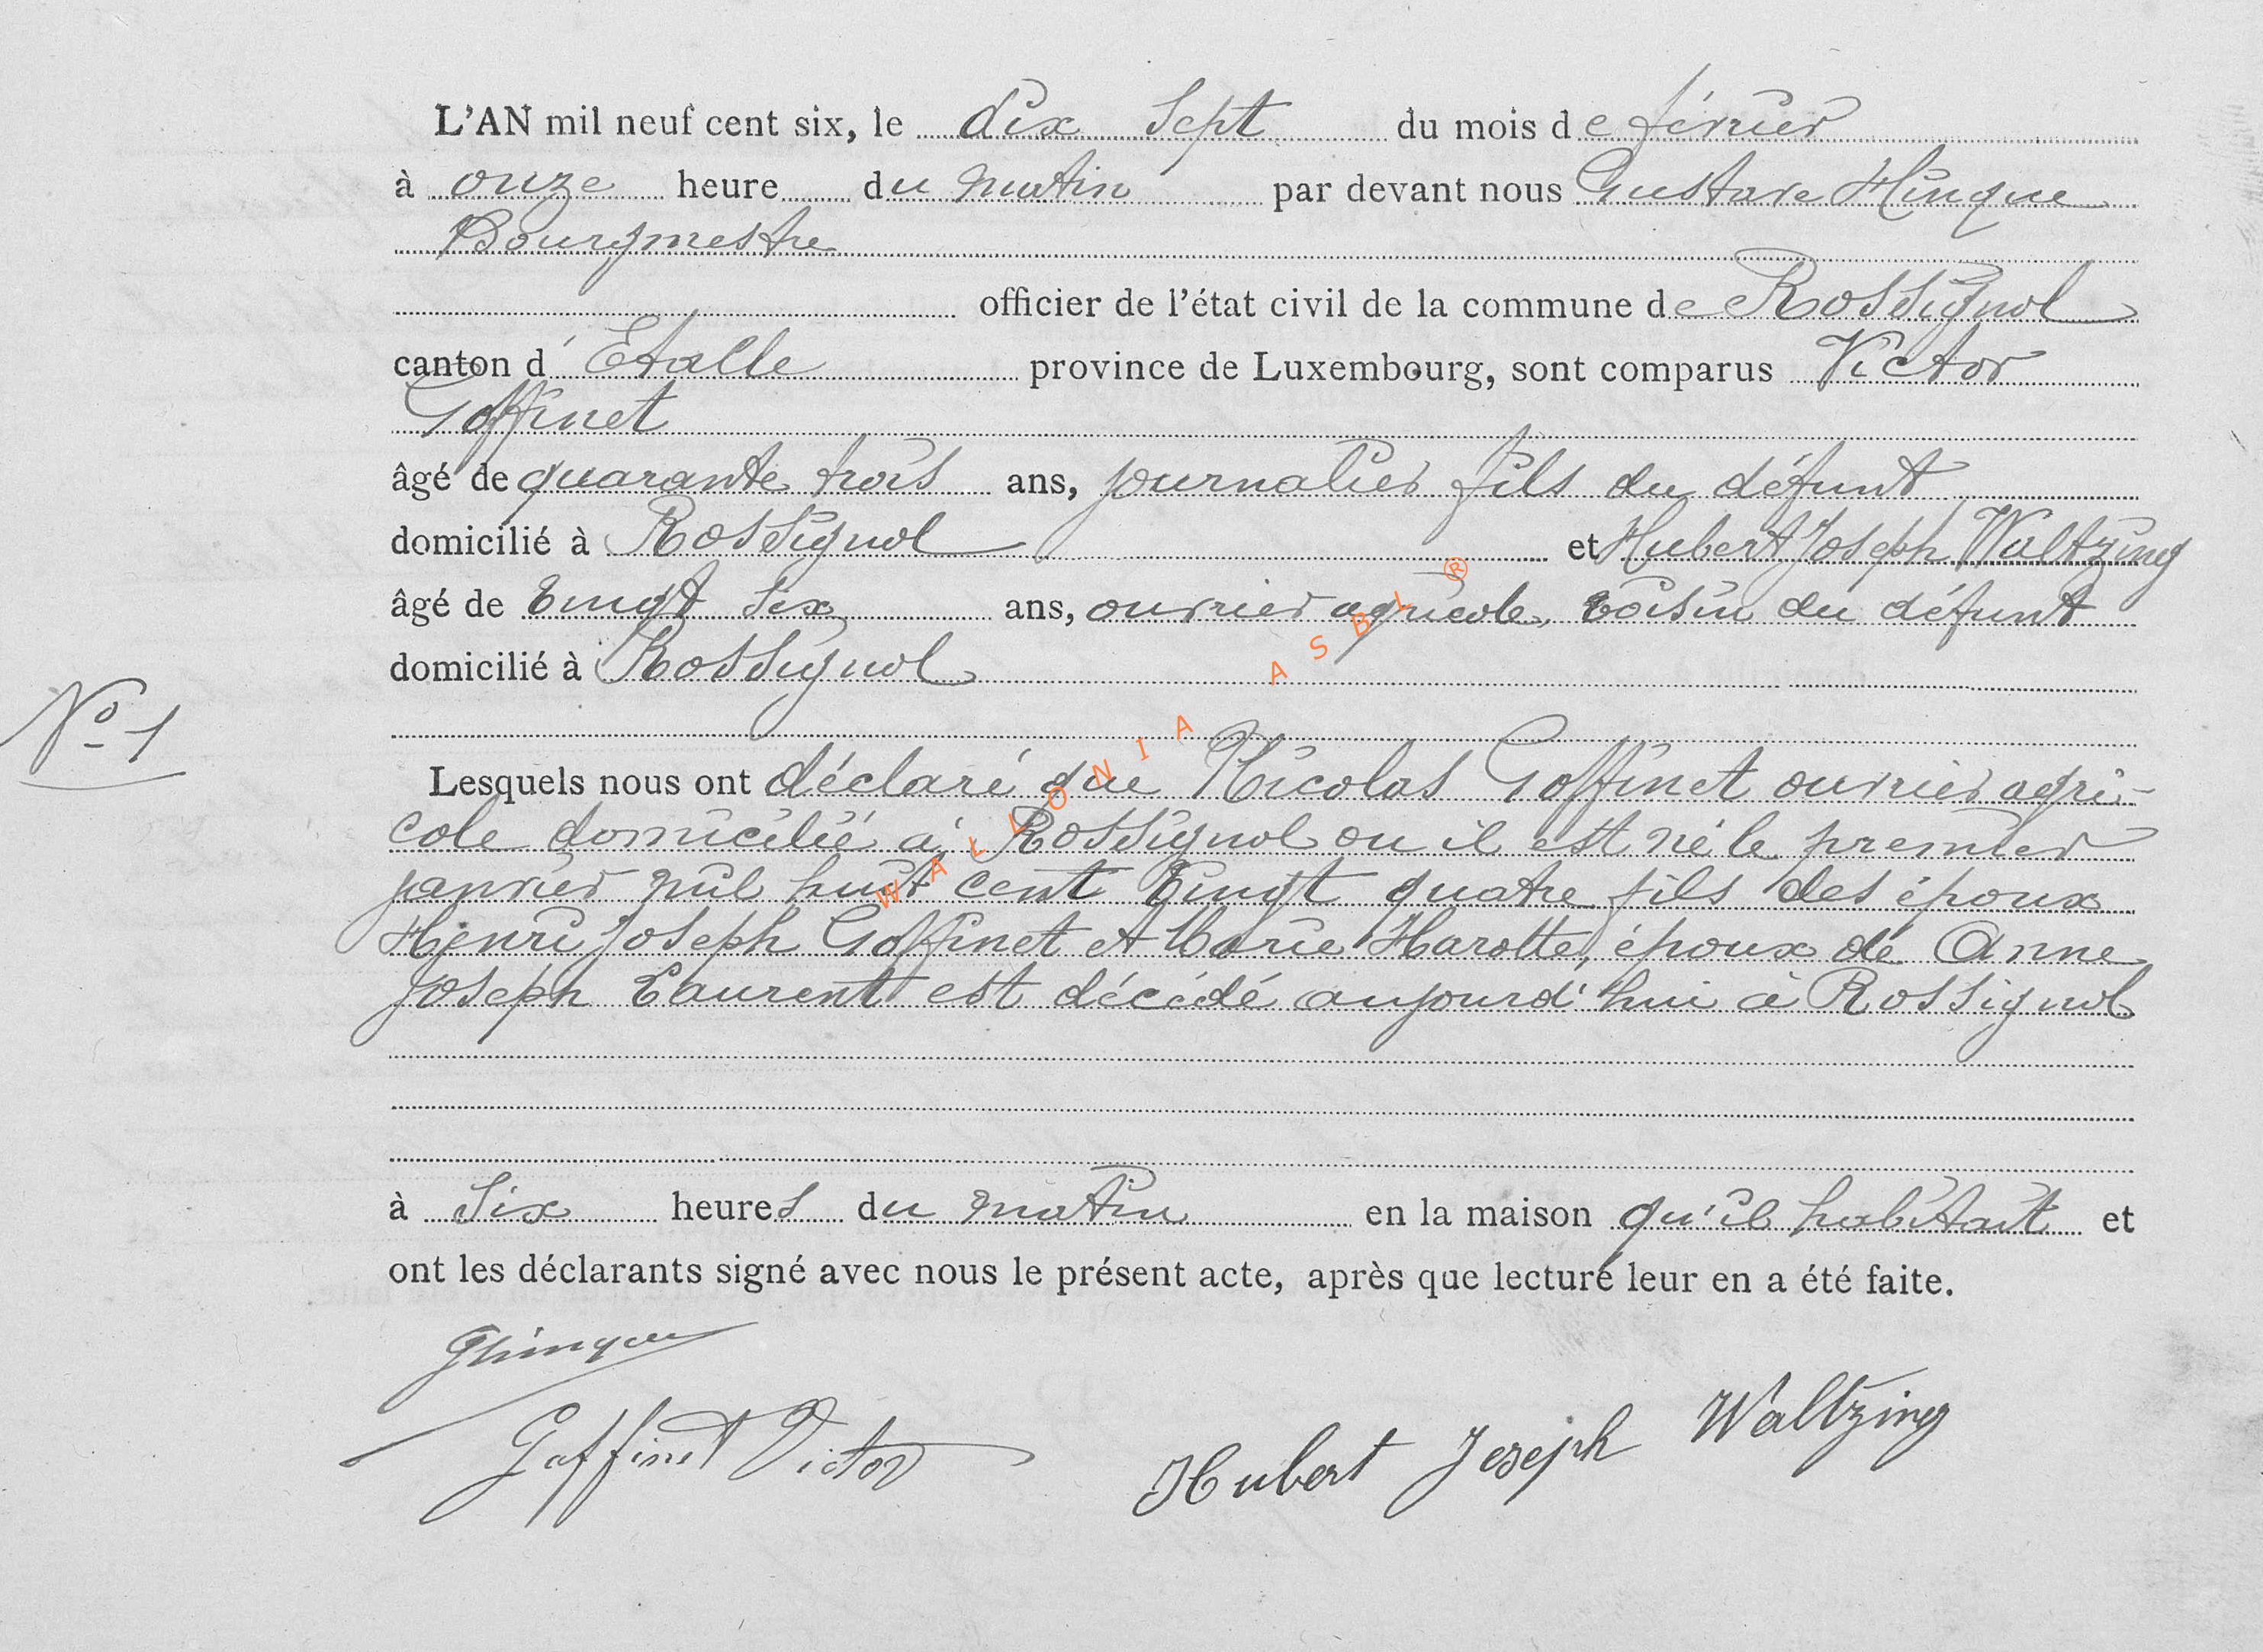 L'AN mil neuf cent six, le dix sept du mois de février
à onze heure du matin par devant nous Gustave Hinque
Bourgmestre
officier de l'état civil de la commune de Rossignol
canton d'Etalle province de Luxembourg, sont comparus Victor
Goffinet
âgé de quarante trois ans, journalier fils du défunt
domicilié à Rossignol et Hubert Joseph Waltzing
âgé de vingt six ans, ouvrier agricole, voisin du défunt
domicilié à Rossignol
N° 1
Lesquels nous ont déclaré que Nicolas Goffinet ouvrier agri-
cole domicilié à Rossignol ou il est né le premier
janvier mil huit cent vingt quatre fils des époux
Henri Joseph Goffinet et Marie Harotte, époux de Anne
Joseph Laurent est décédé aujourd'hui à Rossignol
à six heures du matin en la maison qu'il habitait et
ont les déclarants signé avec nous le présent acte, après que lecture leur en a été faite.
GHinque
Goffinet Victor
Hubert Joseph Waltzing
WALLONIA ASBL ®